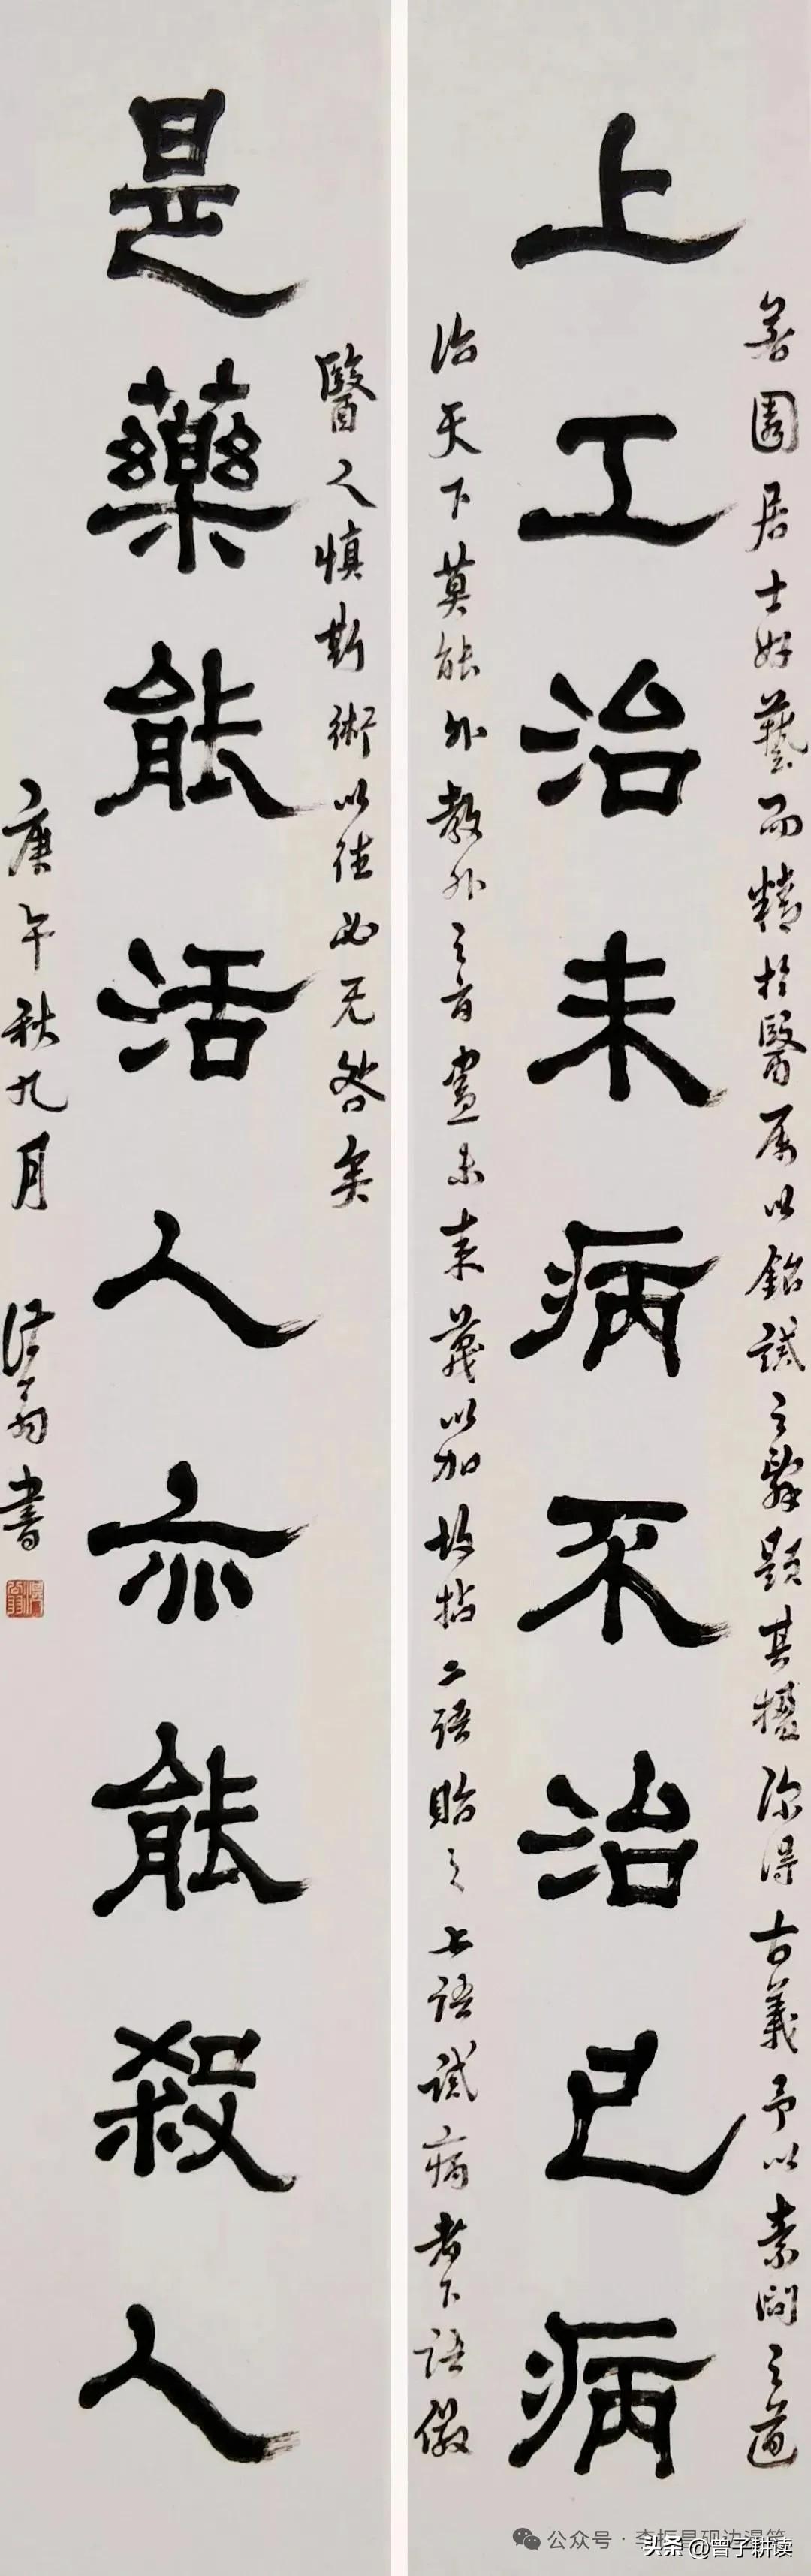 上工治未病不治已病
是藥能活人亦能殺人
善園居士好藝而精於醫屬以鉛試之辭題其攝深得古義予以素問之道
治天下莫能外教外之育盡未來義以加故拈二語貽之上語試病者下語儆
醫人慎斯術以往必无咎矣
庚午秋九月
翁書
公众号·李振昌砚边漫笔
头条 @曾子耕读